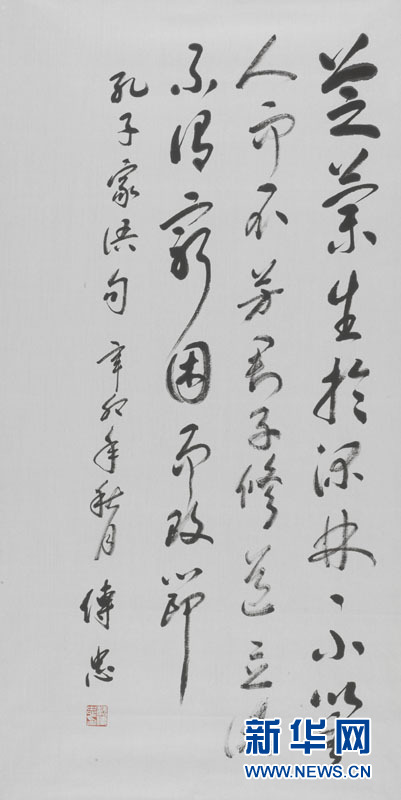 芝蘭生於深林、不以無
人而不芳君子修道立德
不謂窮困而改節
孔子家語句 辛卯年秋月 傳忠
新华网
WWW.NEWS.CN